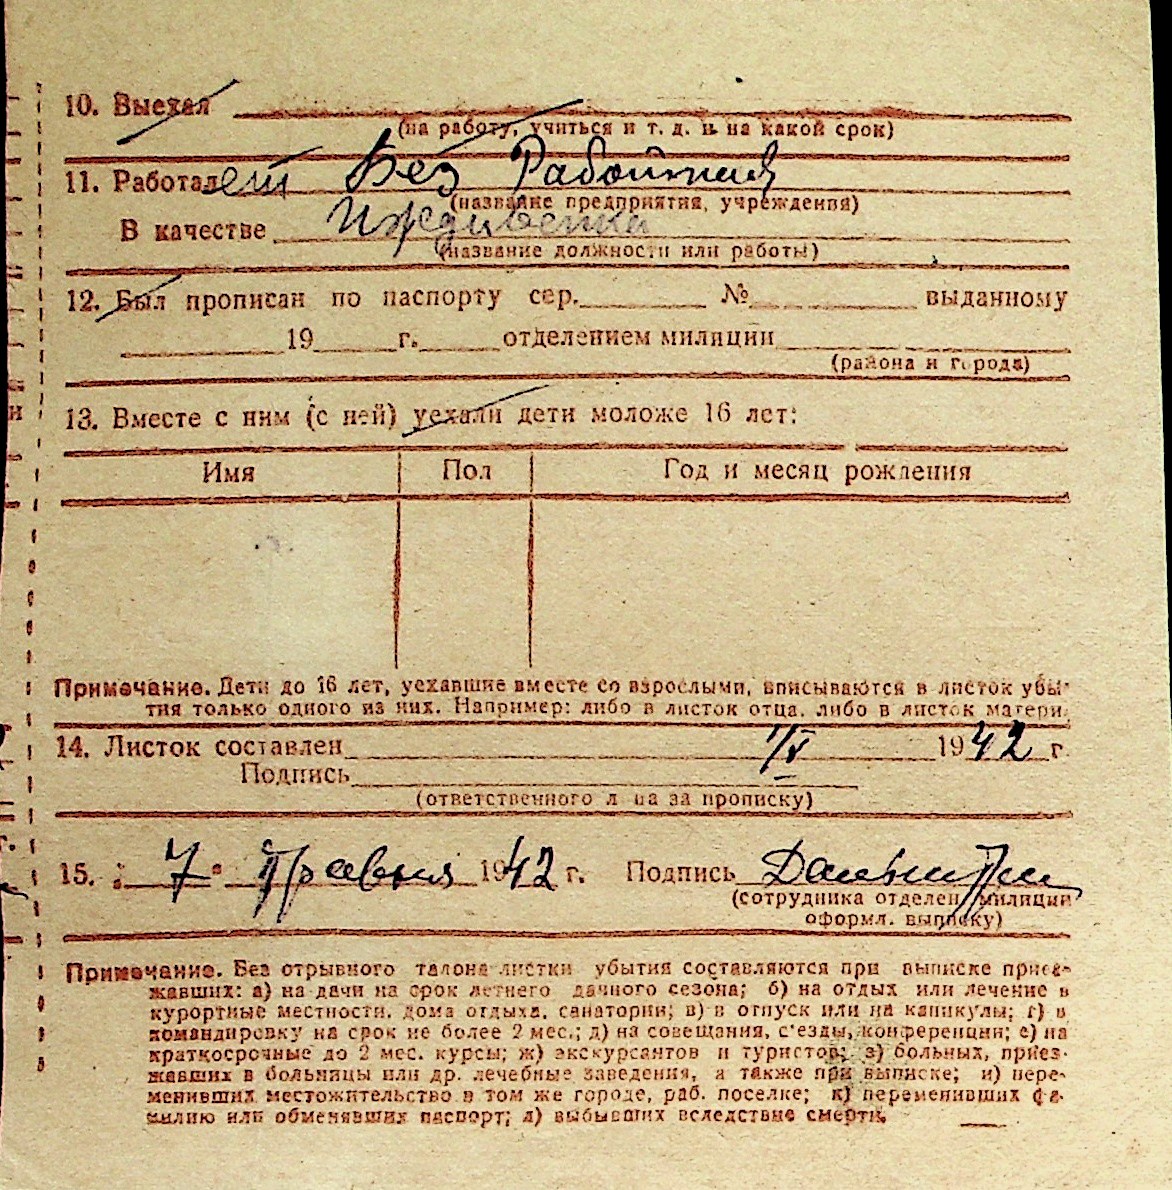 10. Выехал
(на работу, учиться и т. д. и на какой срок)
11. Работает Без Работный
(название предприятия, учреждения)
В качестве Иждивенка
(название должности или работы)
12. Был прописан по паспорту сер. № выданному
19 г. отделением милиции
(района и города)
13. Вместе с ним (с ней) уехали дети моложе 16 лет:
Имя Пол Год и месяц рождения
Примечание. Дети до 16 лет, уехавшие вместе со взрослыми, вписываются в листок убы-
тия только одного из них. Например: либо в листок отца, либо в листок матери.
14. Листок составлен 7/V 1942 г.
Подпись
(ответственного лица за прописку)
15. „7" Травня 1942 г. Подпись
(сотрудника отделен. милиции
оформл. выписку)
Примечание. Без отрывного талона листки убытия составляются при выписке приез-
жавших: а) на дачи на срок летнего дачного сезона; б) на отдых или лечение в
курортные местности, дома отдыха, санатории; в) в отпуск или на каникулы; г) в
командировку на срок не более 2 мес.; д) на совещания, с'езды, конференции; е) на
краткосрочные до 2 мес. курсы; ж) экскурсантов и туристов; з) больных, приез-
жавших в больницы или др. лечебные заведения, а также при выписке; и) пере-
менивших местожительство в том же городе, раб. поселке; к) переменивших фа-
милию или обменявших паспорт; л) выбывших вследствие смерти.